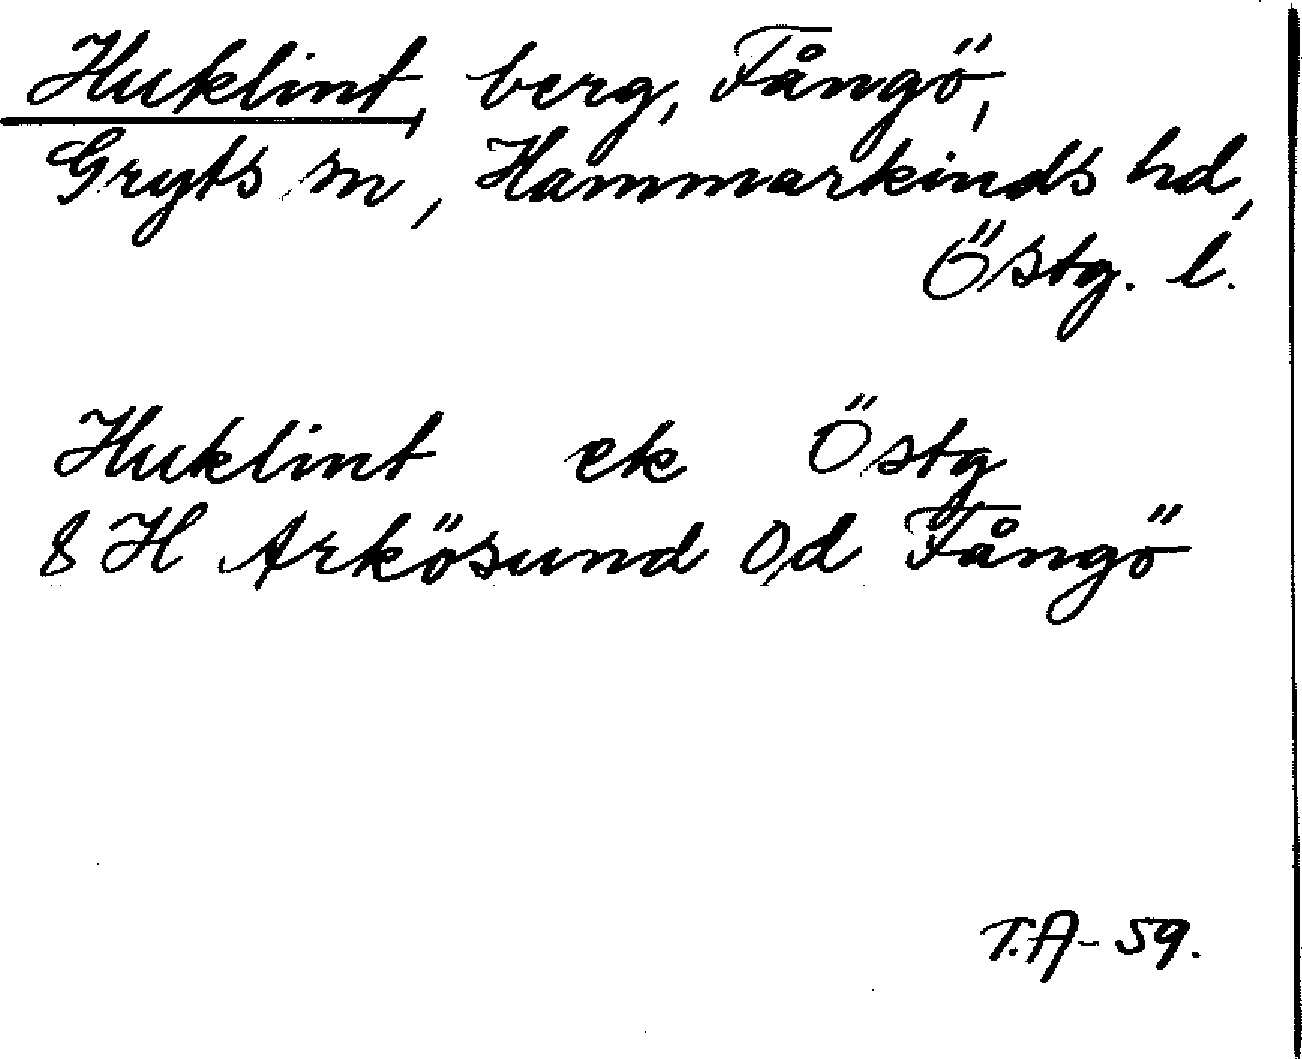 Huklint, berg, Fångö,
Gryts sn, Hammarkinds hd,
Östg. l.
Huklint ek Östg
8 H Arkösund O,d Fångö
T.A-59.